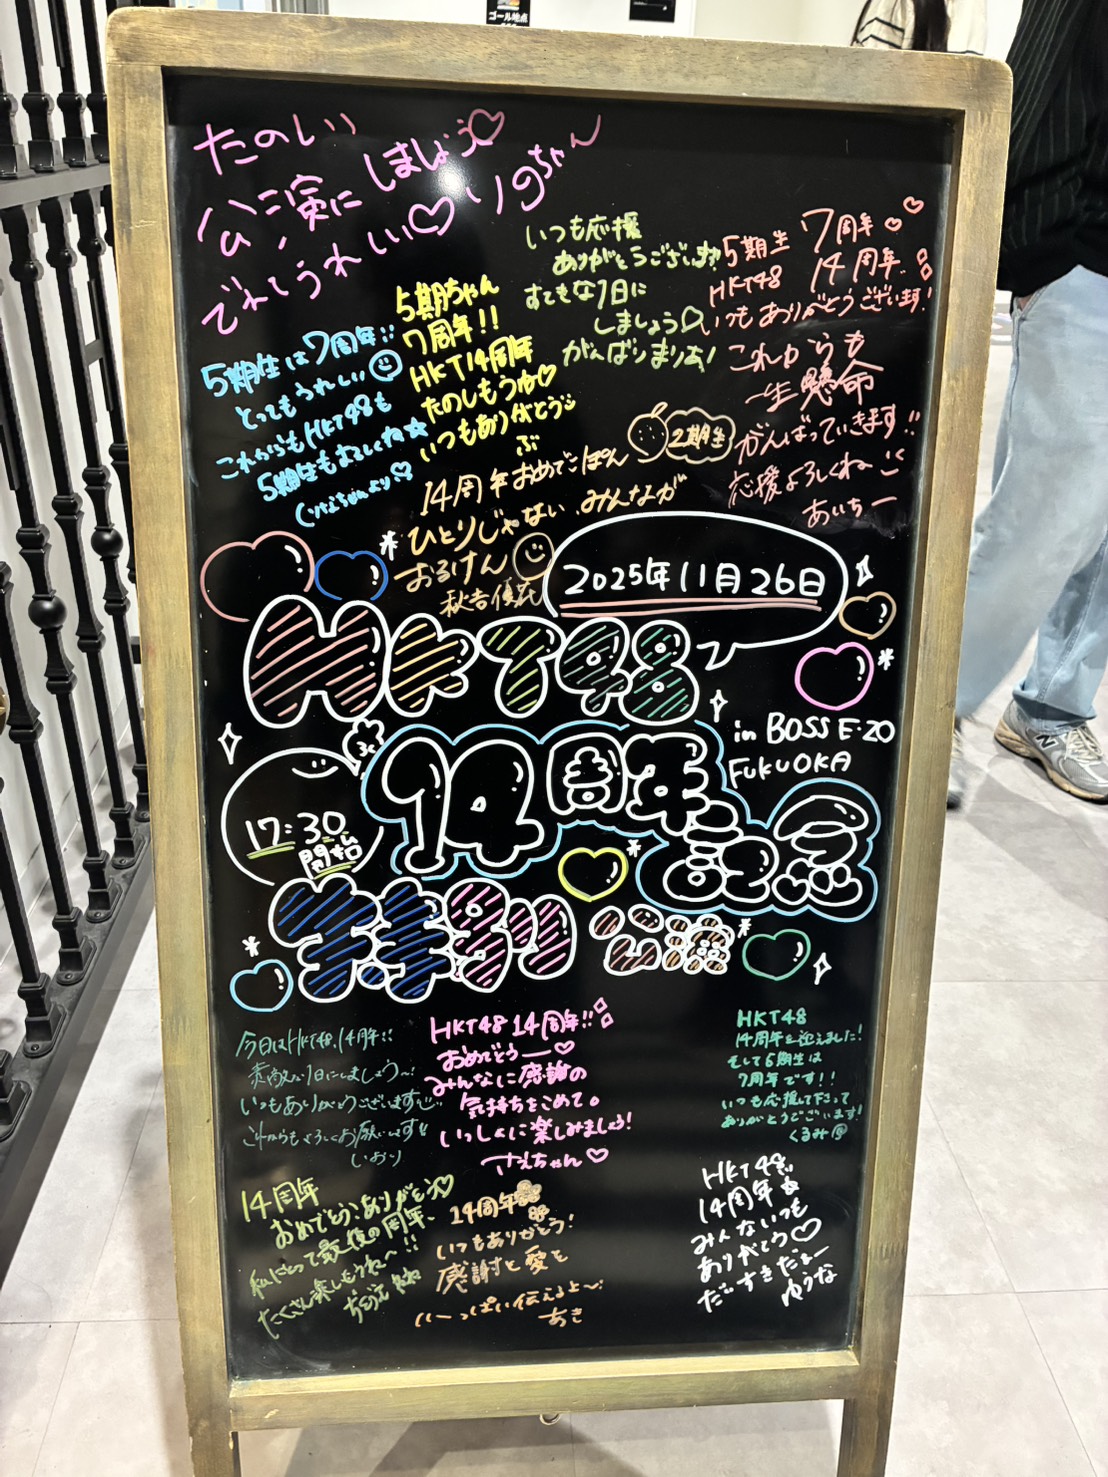 ゴール地点
たのしい
公演にしましょう♡
でれてうれしい♡
いつも応援
ありがとうございます
すてきな1日に
しましょう♡
がんばりまりあ!
5期生 7周年
HKT48 14周年
いつもありがとうございます!
これからも
一生懸命
がんばっていきます!!
応援よろしくね
あいちー
5期ちゃん
7周年!!
HKT14周年
たのしもうね♡
いつもありがとう
ぶ
5期生は7周年!!
とってもうれしい
これからもHKT48も
5期生もよろしくね☆
2期生
14周年おめでこぽん
ひとりじゃない みんなが
おるけん
秋吉優花
2025年11月26日
HKT48
in BOSS E・ZO
FUKUOKA
14周年記念
17:30
開始
特別公演
今日はHKT48 14周年!!
素敵な1日にしましょう〜!
いつもありがとうございます
これからもよろしくお願いします!!
いおり
HKT48 14周年!!
おめでとうー♡
みんなに感謝の
気持ちをこめて。
いっしょに楽しみましょう!
さえちゃん♡
HKT48
14周年を迎えました!
そして6期生は
7周年です!!
いつも応援して下さって
ありがとうございます!
くるみ
14周年
おめでとう、ありがとう♡
私にとって最後の周年、
たくさん楽しもうね〜!!
14周年
いつもありがとう!
感謝と愛を
い〜っぱい伝えるよ〜!
あき
HKT48
14周年☆
みんないつも
ありがとう♡
だいすきだよー
ゆうな